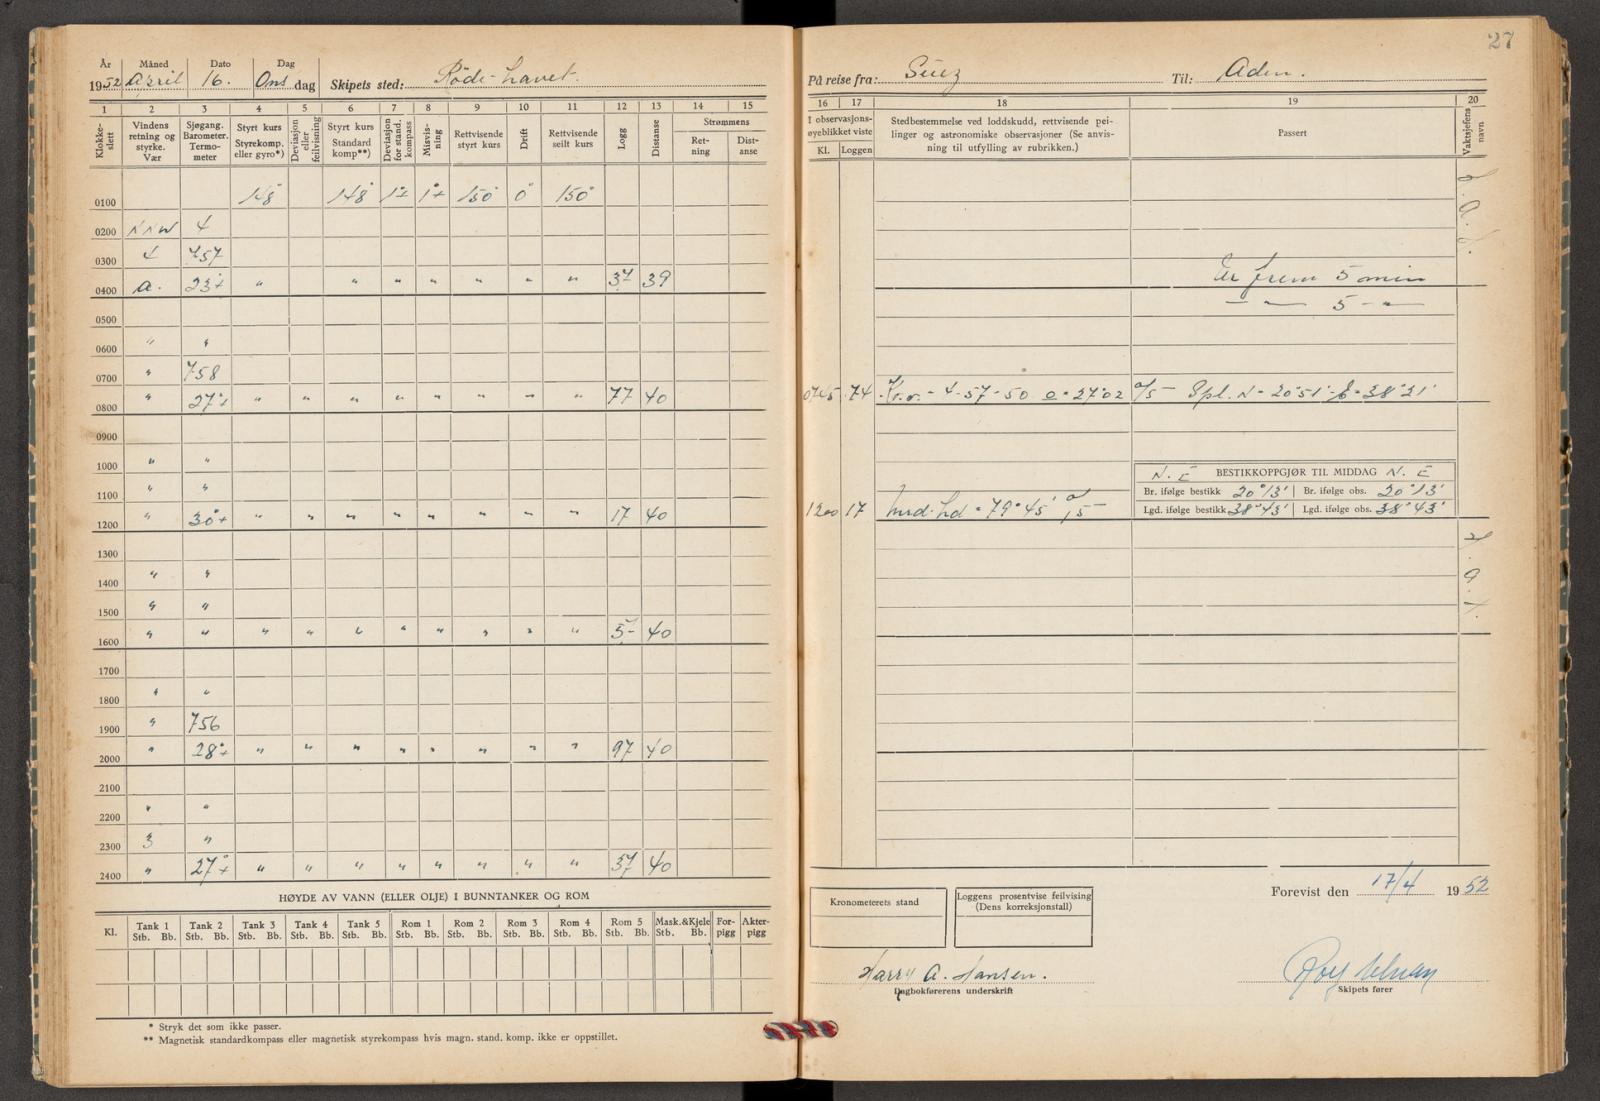 27
År Måned Dato Dag
1952 April 16. Ons dag Skipets sted: Røde-havet.
1 2 3 4 5 6 7 8 9 10 11 12 13 14 15
Klokke-slett
Vindens retning og styrke. Vær
Sjøgang. Barometer. Termometer
Styrt kurs Styrekomp. eller gyro*)
Deviasjon eller feilvisning
Styrt kurs Standard komp**)
Deviasjon for stand. kompass
Misvisning
Rettvisende styrt kurs
Drift
Rettvisende seilt kurs
Logg
Distanse
Strømmens
Retning
Distanse
0100 148° 148° 1°+ 1°+ 150° 0° 150°
0200 NNW 4
0300 4 757
0400 a. 23°+ " " " " " " " 37 39
0500
0600 " "
0700 " 758
0800 " 27°+ " " " " " " " " 77 40
0900
1000 " "
1100 " "
1200 " 30°+ " " " " " " " " 17 40
1300
1400 " "
1500 " "
1600 " " " " " " " " " " 5- 40
1700
1800 " "
1900 " 756
2000 " 28°+ " " " " " " " " 97 40
2100
2200 " "
2300 3 "
2400 " 27°+ " " " " " " " " 37 40
HØYDE AV VANN (ELLER OLJE) I BUNNTANKER OG ROM
Kl. Tank 1 Tank 2 Tank 3 Tank 4 Tank 5 Rom 1 Rom 2 Rom 3 Rom 4 Rom 5 Mask.&Kjele For-pigg Akter-pigg
Stb. Bb. Stb. Bb. Stb. Bb. Stb. Bb. Stb. Bb. Stb. Bb. Stb. Bb. Stb. Bb. Stb. Bb. Stb. Bb. Stb. Bb.
* Stryk det som ikke passer.
** Magnetisk standardkompass eller magnetisk styrekompass hvis magn. stand. komp. ikke er oppstillet.
På reise fra: Suez Til: Aden.
16 17 18 19 20
I observasjons-øyeblikket viste
Kl. Loggen
Stedbestemmelse ved loddskudd, rettvisende peilinger og astronomiske observasjoner (Se anvisning til utfylling av rubrikken.)
Passert
Vaktsjefens navn
Ur frem 5 min
— " — 5 — " —
0745 74 Kr.v. = 4-57-50 o = 27°02 a/5 Spl. N = 20°51' E = 38°21'
N. E BESTIKKOPPGJØR TIL MIDDAG N. E
Br. ifølge bestikk 20°13' Br. ifølge obs. 20°13'
1200 17 = 79°45' a/5 Lgd. ifølge bestikk 38°43' Lgd. ifølge obs. 38°43'
Kronometerets stand
Loggens prosentvise feilvising
(Dens korreksjonstall)
Forevist den 17/4 1952
Harry A. Hansen.
Dagbokførerens underskrift
Skipets fører